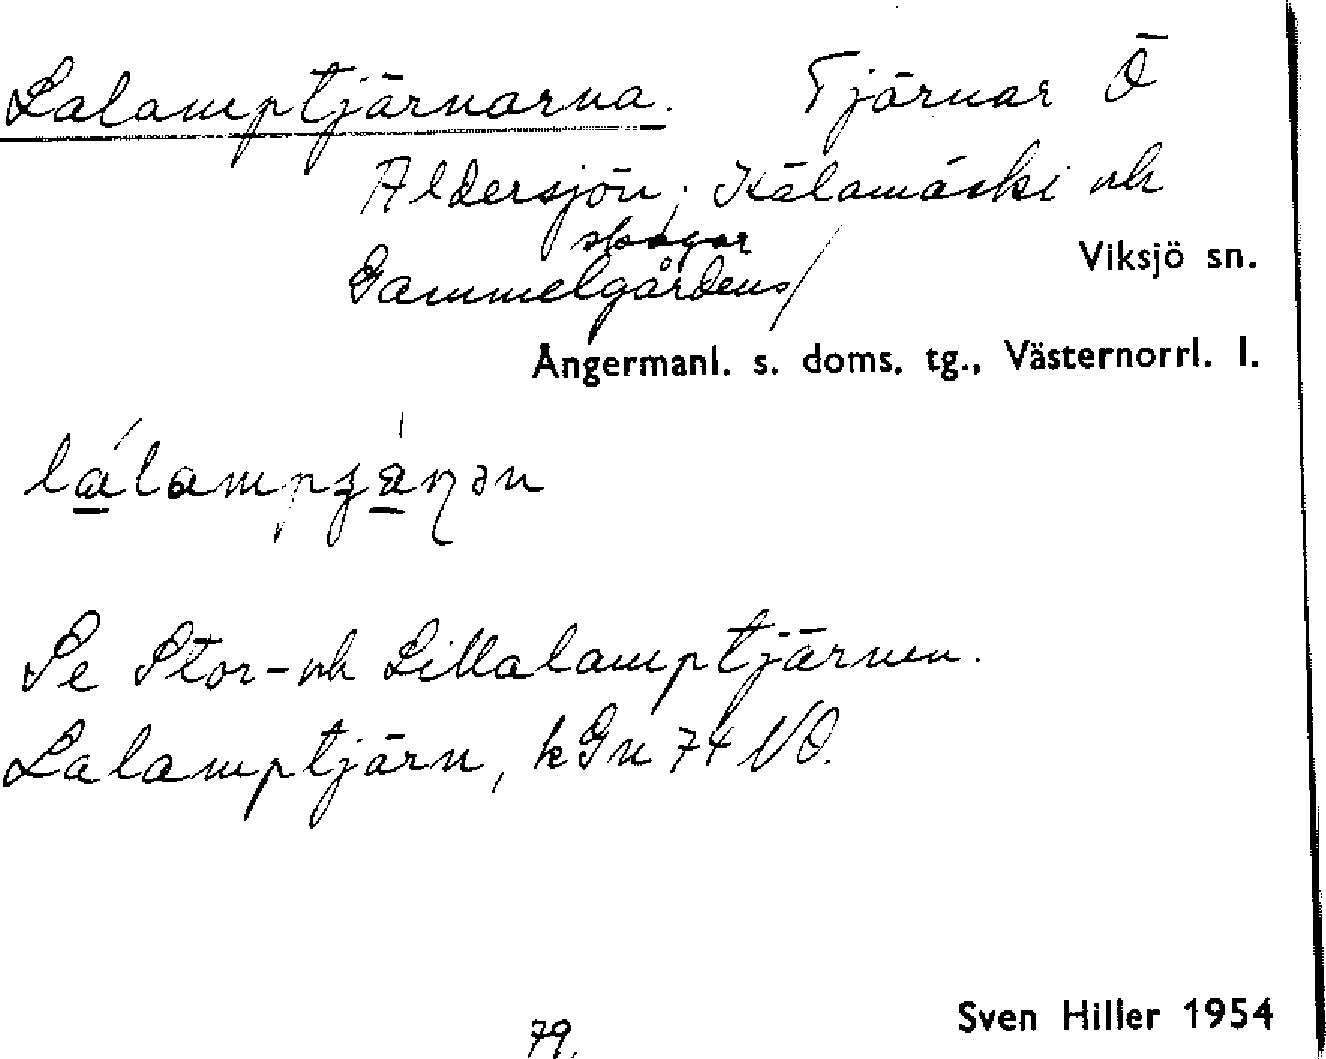 Lalamptjärnarna. Tjärnar Ö
Aldersjön; Kälamäski och
skogar
Gammelgårdens/
Viksjö sn.
Ångermanl. s. doms. tg., Västernorrl. l.
Se Stor- och Lillalamptjärnen.
Lalamptjärn, kGn 74 NO.
79.
Sven Hiller 1954